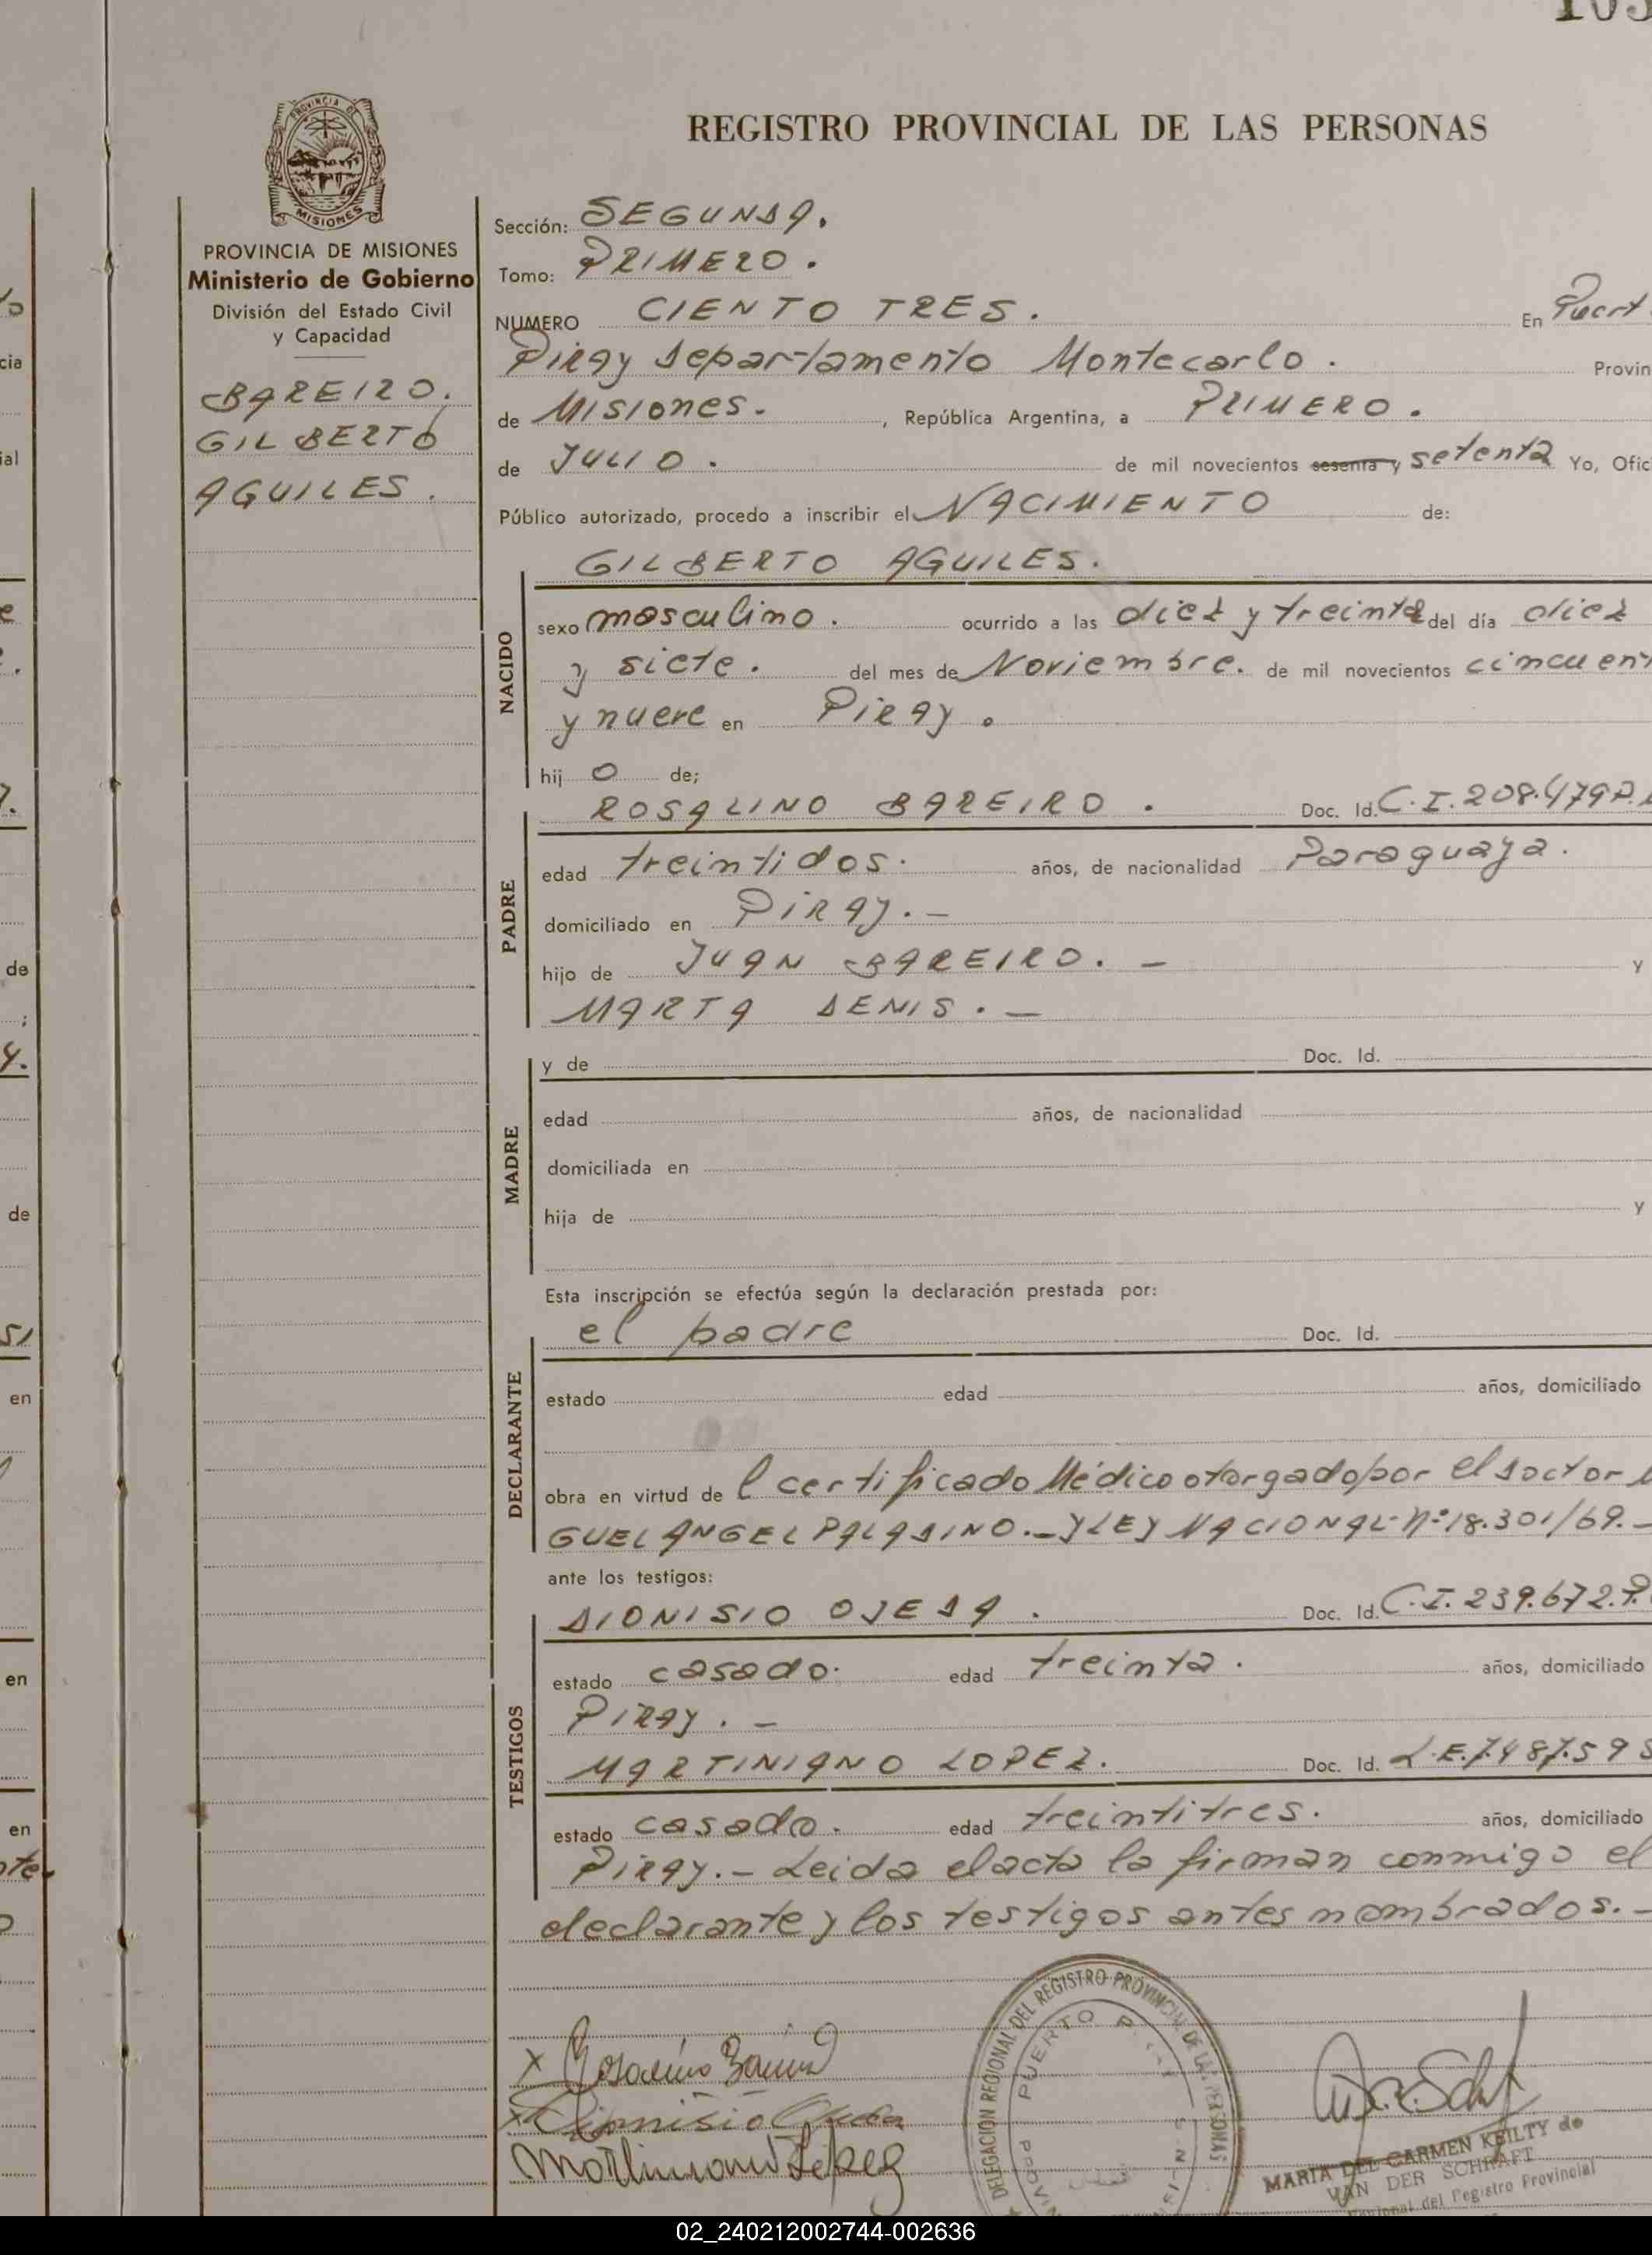 103
REGISTRO PROVINCIAL DE LAS PERSONAS
PROVINCIA DE MISIONES
PROVINCIA DE MISIONES
Ministerio de Gobierno
División del Estado Civil
y Capacidad
BAREIRO.
GILBERTO
AGUILES.
Sección: SEGUNDA.
Tomo: PRIMERO.
NUMERO CIENTO TRES. En Puert
Piray departamento Montecarlo. Provin
de Misiones. , República Argentina, a PRIMERO.
de JULIO. de mil novecientos sesenta y setenta Yo, Ofic
Público autorizado, procedo a inscribir el NACIMIENTO de:
GILBERTO AGUILES.
NACIDO
sexo masculino. ocurrido a las diez y treinta del día diez
y siete. del mes de Noviembre. de mil novecientos cincuent
y nueve en Piray.
hij o de;
PADRE
ROSALINO BAREIRO. Doc. Id. C.I. 208.479P.
edad treintidos. años, de nacionalidad Paraguaya.
domiciliado en Piray.-
hijo de JUAN BAREIRO.- y
MARTA DENIS.-
MADRE
y de Doc. Id.
edad años, de nacionalidad
domiciliada en
hija de y
Esta inscripción se efectúa según la declaración prestada por:
DECLARANTE
el padre Doc. Id.
estado edad años, domiciliado
obra en virtud de l certificado Médico otorgado por el doctor
GUEL ANGEL PALADINO.- Y LEY NACIONAL Nº 18.301/69.-
ante los testigos:
TESTIGOS
DIONISIO OJEDA. Doc. Id. C.I. 239.672.P.
estado casado. edad treinta. años, domiciliado
Piray.-
MARTINIANO LOPEZ. Doc. Id. L.E. 7.487.59
estado casado. edad treintitres. años, domiciliado
Piray.- Leida el acta la firman conmigo el
declarante y los testigos antes nombrados.-
x Rosalino Bareiro
x Dionisio Ojeda
Martiniano López
DELEGACION REGIONAL DEL REGISTRO PROVINCIAL DE LAS PERSONAS
PUERTO
MARIA DEL CARMEN KEILTY de
VAN DER SCHRAFT
del Registro Provincial
02_240212002744-002636